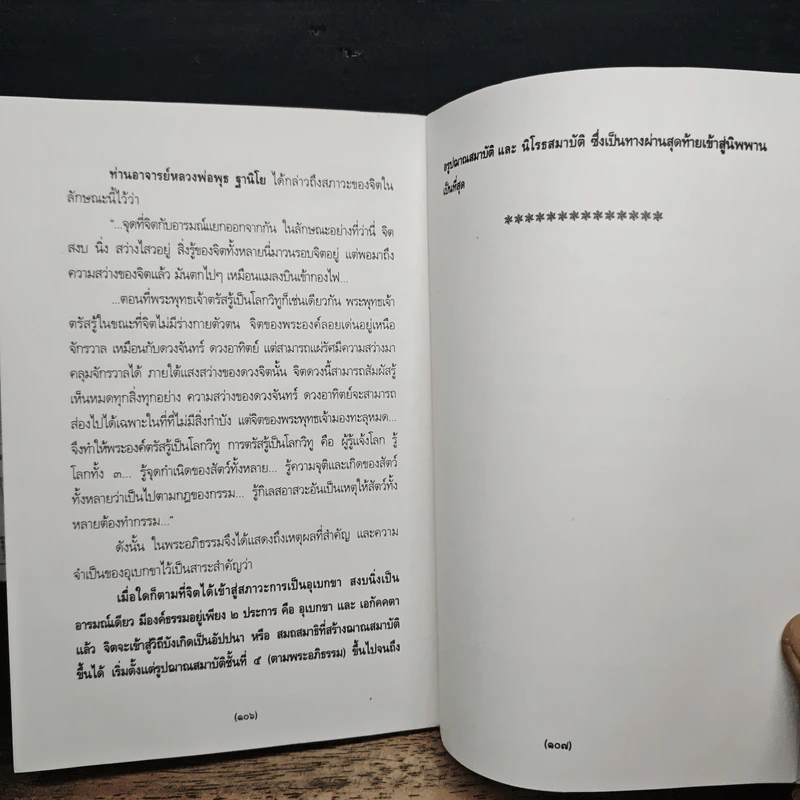 ท่านอาจารย์หลวงพ่อพุธ ฐานิโย ได้กล่าวถึงสภาวะของจิตใน
ลักษณะนี้ไว้ว่า
"...จุดที่จิตกับอารมณ์แยกออกจากกัน ในลักษณะอย่างที่ว่านี่ จิต
สงบ นิ่ง สว่างไสวอยู่ สิ่งรู้ของจิตทั้งหลายนี่มาวนรอบจิตอยู่ แต่พอมาถึง
ความสว่างของจิตแล้ว มันตกไปๆ เหมือนแมลงบินเข้ากองไฟ...
...ตอนที่พระพุทธเจ้าตรัสรู้เป็นโลกวิทูก็เช่นเดียวกัน พระพุทธเจ้า
ตรัสรู้ในขณะที่จิตไม่มีร่างกายตัวตน จิตของพระองค์ลอยเด่นอยู่เหนือ
จักรวาล เหมือนกับดวงจันทร์ ดวงอาทิตย์ แต่สามารถแผ่รัศมีความสว่างมา
คลุมจักรวาลได้ ภายใต้แสงสว่างของดวงจิตนั้น จิตดวงนี้สามารถสัมผัสรู้
เห็นหมดทุกสิ่งทุกอย่าง ความสว่างของดวงจันทร์ ดวงอาทิตย์จะสามารถ
ส่องไปได้เฉพาะในที่ที่ไม่มีสิ่งกำบัง แต่จิตของพระพุทธเจ้ามองทะลุหมด...
จึงทำให้พระองค์ตรัสรู้เป็นโลกวิทู การตรัสรู้เป็นโลกวิทู คือ ผู้รู้แจ้งโลก รู้
โลกทั้ง ๓... รู้จุดกำเนิดของสัตว์ทั้งหลาย... รู้ความจุติและเกิดของสัตว์
ทั้งหลายว่าเป็นไปตามกฎของกรรม... รู้กิเลสอาสวะอันเป็นเหตุให้สัตว์ทั้ง
หลายต้องทำกรรม..."
ดังนั้น ในพระอภิธรรมจึงได้แสดงถึงเหตุผลที่สำคัญ และความ
จำเป็นของอุเบกขาไว้เป็นสาระสำคัญว่า
เมื่อใดก็ตามที่จิตได้เข้าสู่สภาวะการเป็นอุเบกขา สงบนิ่งเป็น
อารมณ์เดียว มีองค์ธรรมอยู่เพียง ๒ ประการ คือ อุเบกขา และ เอกัคคตา
แล้ว จิตจะเข้าสู้วิถีบังเกิดเป็นอัปปนา หรือ สมถสมาธิที่สร้างฌาณสมาบัติ
ขึ้นได้ เริ่มตั้งแต่รูปฌาณสมาบัติชั้นที่ ๕ (ตามพระอภิธรรม) ขึ้นไปจนถึง
(๑๐๖)
อรูปฌาณสมาบัติ และ นิโรธสมาบัติ ซึ่งเป็นทางผ่านสุดท้ายเข้าสู่นิพพาน
เป็นที่สุด
***************
(๑๐๗)